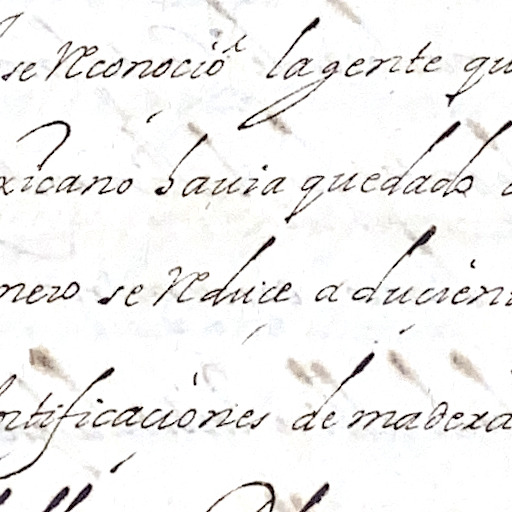 se Reconoció la gente qu
xicano hauia quedado
mero se Reduce a duçien
ortificaciones de madera